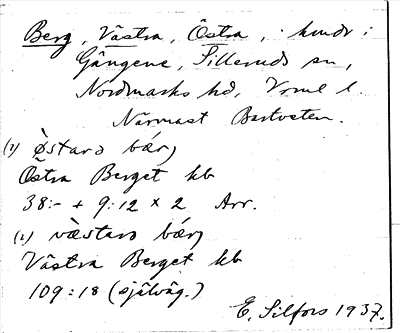 Berg, Västra, Östra, hmdr i
Gängene, Silleruds sn,
Nordmarks hd, Vrml l.
Närmast Bastveten.
(1) òstarə bærj
Östra Berget kb
38:- + 9:12 x 2 Arr.
(1) væ̀starə bærj
Västra Berget kb
109:18 (själväg.)
E. Silfors 1937.